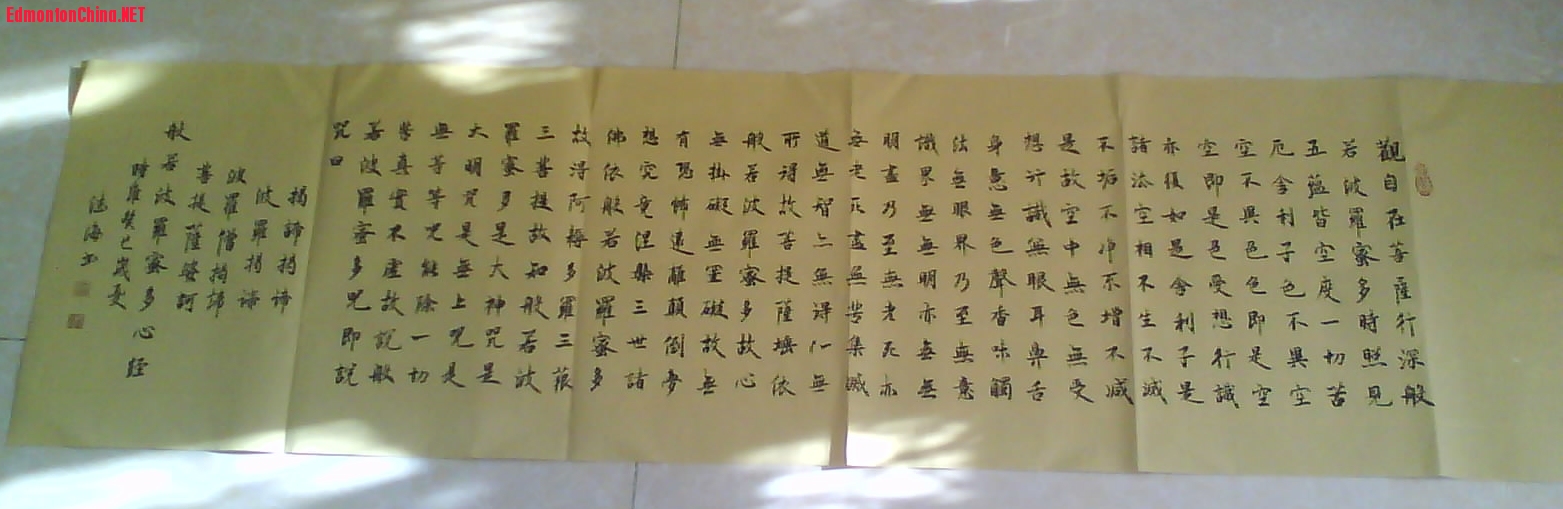 EdmontonChina.NET
觀自在菩薩行深般
若波羅蜜多時照見
五蘊皆空度一切苦
厄舍利子色不異空
空不異色色即是空
空即是色受想行識
亦復如是舍利子是
諸法空相不生不滅
不垢不淨不增不減
是故空中無色無受
想行識無眼耳鼻舌
身意無色聲香味觸
法無眼界乃至無意
識界無無明亦無無
明盡乃至無老死亦
無老死盡無苦集滅
道無智亦無得以無
所得故菩提薩埵依
般若波羅蜜多故心
無掛礙無罣礙故無
有恐怖遠離顛倒夢
想究竟涅槃三世諸
佛依般若波羅蜜多
故得阿耨多羅三藐
三菩提故知般若波
羅蜜多是大神咒是
大明咒是無上咒是
無等等咒能除一切
苦真實不虛故說般
若波羅蜜多咒即說
咒曰
揭諦揭諦
波羅揭諦
波羅僧揭諦
菩提薩婆訶
般若波羅蜜多心經
時維癸巳歲夏
法海書